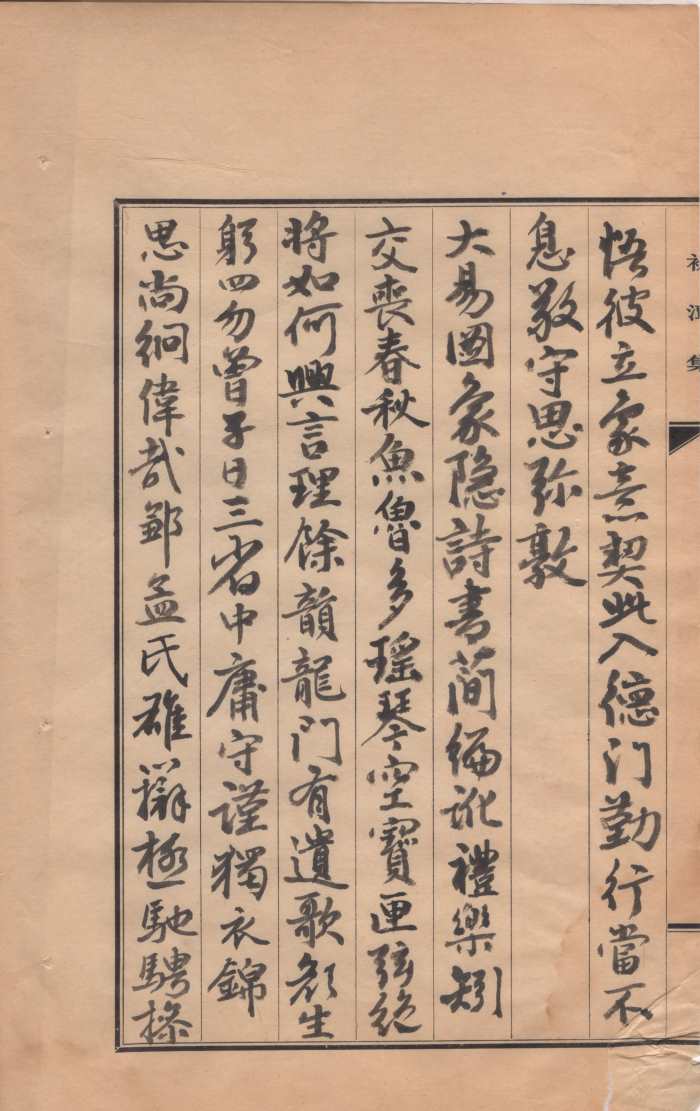 悟彼立象意契此入德门勤行當不
息敬守思弥敦
大易圖象隐詩書簡編訛禮樂矧
交喪春秋魚魯多瑶琴空寶匣弦絶
將如何興言理餘韻龍门有遺歌顏生
躬四勿曾子日三省中庸守謹獨衣錦
思尚絅偉哉鄒孟氏雄辯極馳騁操